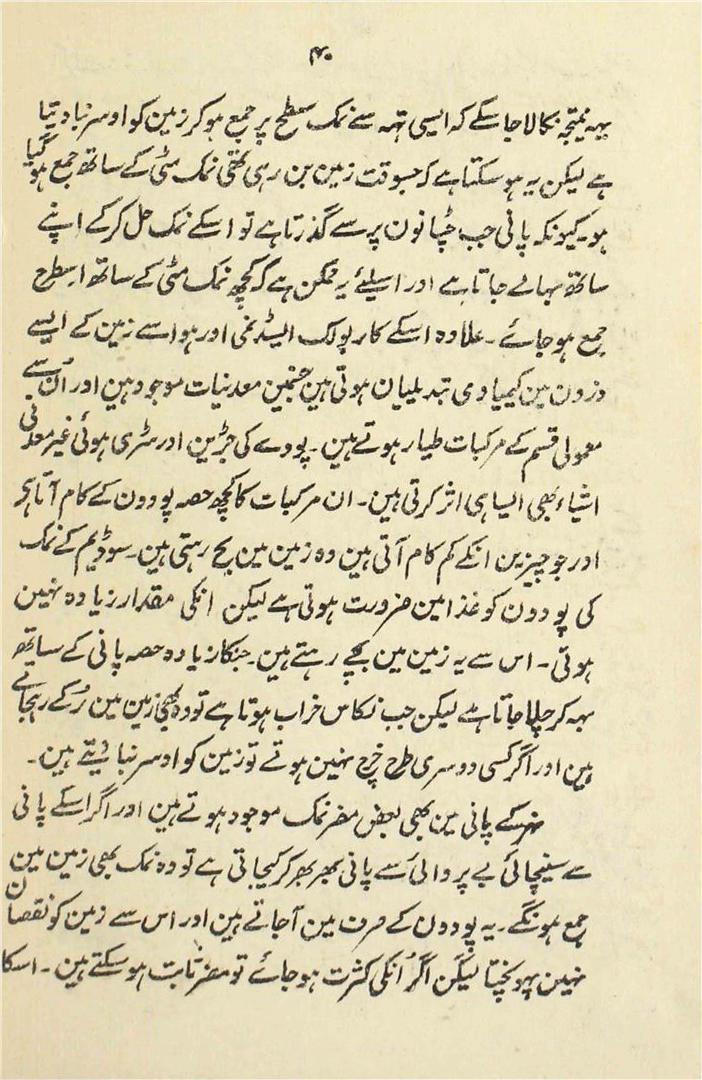 ۴۰
یہہ نتیجہ نکالا جا سکے کہ ایسی تہہ سے نمک سطح پر جمع ہو کر زمین کو اوسر بنا دیتا
ہے لیکن یہ ہو سکتا ہے کہ جسوقت زمین بن رہی تھی نمک مٹی کے ساتھ جمع ہو گیا
ہو۔ کیونکہ پانی جب چٹانون پر سے گذرتا ہے تو اسکے نمک حل کر کے اپنے
ساتھ بہا لے جاتا ہے اور اسیلئے یہ ممکن ہے کہ کچھ نمک مٹی کے ساتھ اسطرح
جمع ہو جائے۔ علاوہ اسکے کاربولک ایسڈ نمی اور ہوا سے زمین کے ایسے
ذرون مین کیمیاوی تبدیلیان ہوتی ہین جنمین معدنیات موجود ہین اور اُن سے
معمولی قسم کے مرکبات طیار ہوتے ہین۔ پودے کی جڑین اور سٹری ہوئی غیر معدنی
اشیاء بھی ایسا ہی اثر کرتی ہین۔ ان مرکبات کا کچھ حصہ پودون کے کام آتا ہی
اور جو چیزین انکے کم کام آتی ہین وہ زمین مین بچ رہتی ہین۔ سوڈیم کے نمک
کی پودون کو غذا مین ضرورت ہوتی ہے لیکن انکی مقدار زیادہ نہین
ہوتی۔ اس سے یہ زمین مین بچے رہتے ہین۔ جنکا زیادہ حصہ پانی کے ساتھ
بہہ کر چلا جاتا ہے لیکن جب نکاس خراب ہوتا ہے تو وہ بھی زمین مین رُکے رہجاتے
ہین اور اگر کسی دوسری طرح خرچ نہین ہوتے تو زمین کو اوسر بنا دیتے ہین۔
نہر کے پانی مین بھی بعض مضر نمک موجود ہوتے ہین اور اگر اسکے پانی
سے سینچائی بے پروائی سے پانی بھر بھر کر کیجاتی ہے تو وہ نمک بھی زمین مین
جمع ہونگے۔ یہ پودون کے صرف مین آجاتے ہین اور اس سے زمین کو نقصان
نہین پہونچتا لیکن اگر اُنکی کثرت ہو جائے تو مضر ثابت ہو سکتے ہین۔ اسکا